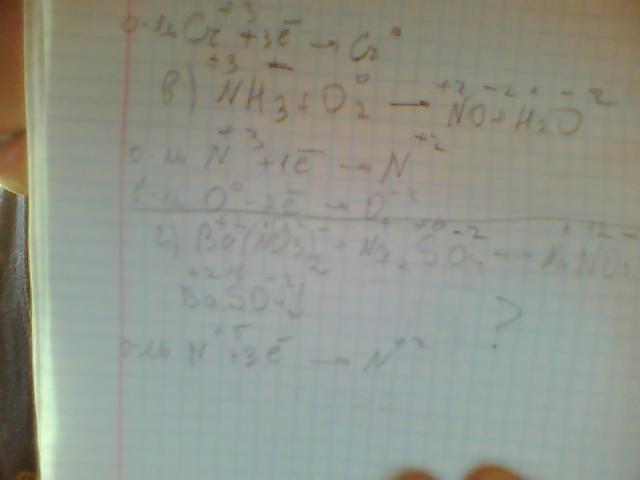 о-ль Cr⁺³ +3e̅ → Cr⁰
в) N⁺³H₃⁻ + O₂⁰ → N⁺²O⁻² + H₂⁺O⁻²
о-ль N⁺³ +1e̅ → N⁺²
O⁰ -2e̅ → O⁻²
г) Ba⁺²(NO₃)₂⁻ + Na₂SO₄ → NaNO₃
BaSO₄↓ ?
о-ль N⁺⁵ +3e̅ → N⁺²